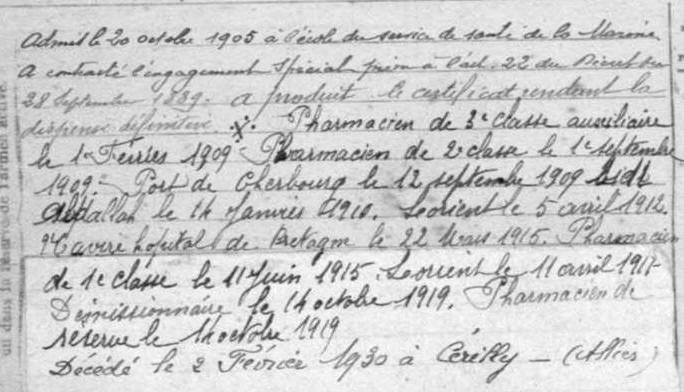 Admis le 20 octobre 1905 à l'école du service de santé de la Marine
A contracté l'engagement spécial prévu à l'art. 22 du Décret du
28 Septembre 1889. a produit le certificat rendant la
dispense définitive. Pharmacien de 3e classe auxiliaire
le 1er Février 1909 - Pharmacien de 2e classe le 1er septembre
1909 - Port de Cherbourg le 12 septembre 1909 Sidi
Abdallah le 14 Janvier 1910. Lorient le 5 avril 1912.
Navire hopital de Bretagne le 22 Mars 1915. Pharmacien
de 1e classe le 11 Juin 1915. Lorient le 11 avril 1917
Démissionnaire le 14 octobre 1919. Pharmacien de
réserve le 14 octobre 1919
Décédé le 2 Février 1930 à Cérilly - (Allier)